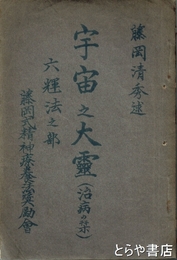 藤岡清秀述
宇宙之大靈（治病の栞）
六輝法之部
藤岡式精神療養法奨励會
とらや書店